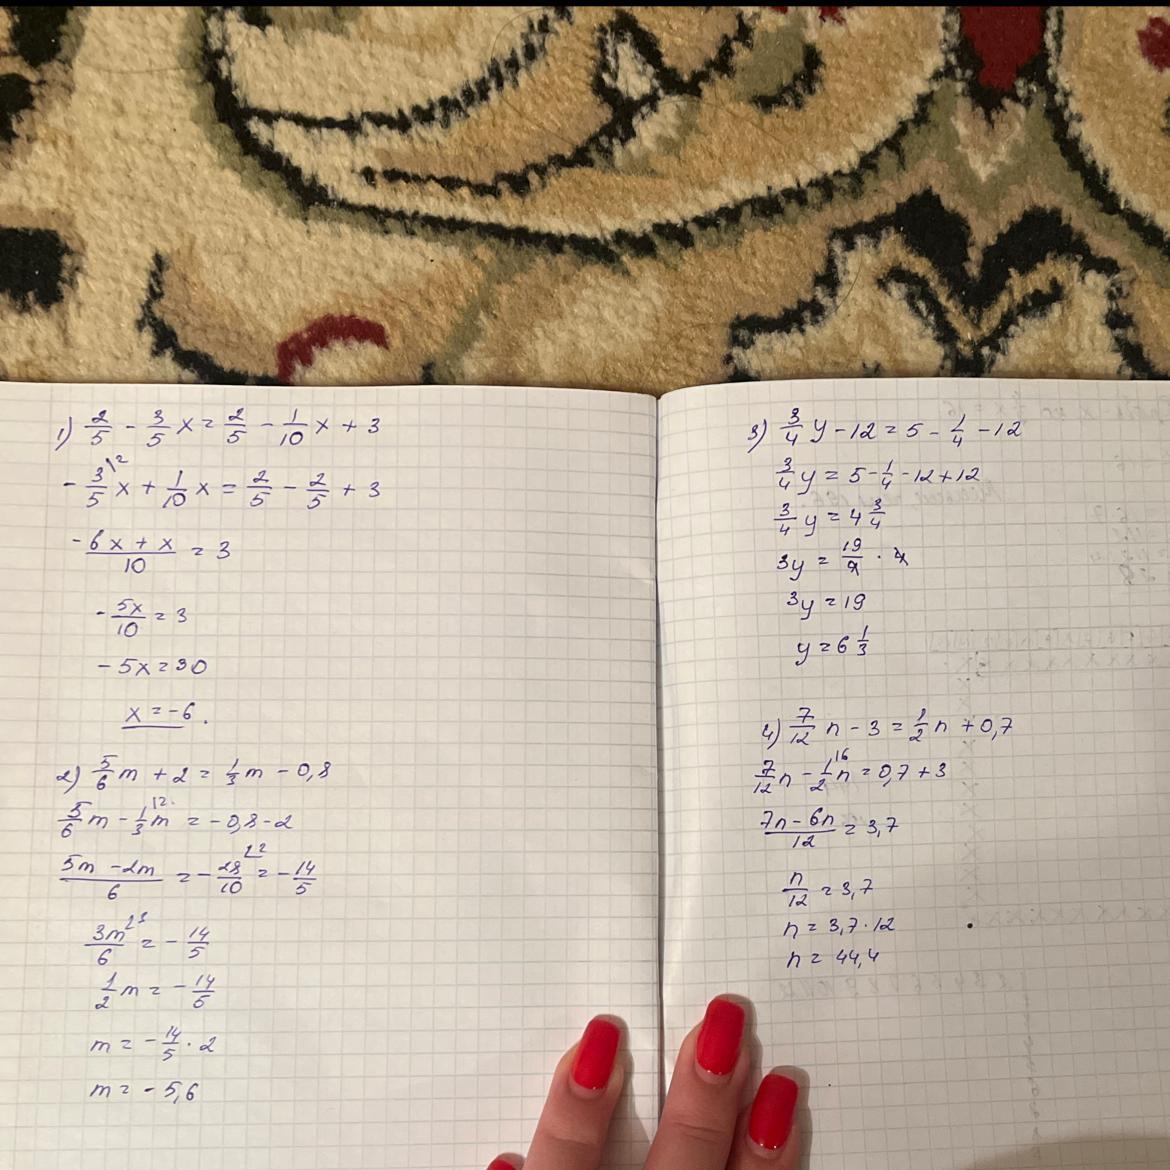 1) 2/5 - 3/5 x = 2/5 - 1/10 x + 3
- 3/5 \2 x + 1/10 x = 2/5 - 2/5 + 3
- 6x + x / 10 = 3
- 5x/10 = 3
- 5x = 30
x = -6.
2) 5/6 m + 2 = 1/3 m - 0,8
5/6 m - 1/3 m |2 = -0,8 - 2
5m - 2m / 6 = - 28/10 = - 14/5
3m/6 = - 14/5
1/2 m = - 14/5
m = - 14/5 · 2
m = - 5,6
3) 3/4 y - 12 = 5 - 1/4 - 12
3/4 y = 5 - 1/4 - 12 + 12
3/4 y = 4 3/4
3y = 19/4 · 4
3y = 19
y = 6 1/3
4) 7/12 n - 3 = 1/2 n + 0,7
7/12 n - 1/2 n |6 = 0,7 + 3
7n - 6n / 12 = 3,7
n/12 = 3,7
n = 3,7 · 12
n = 44,4